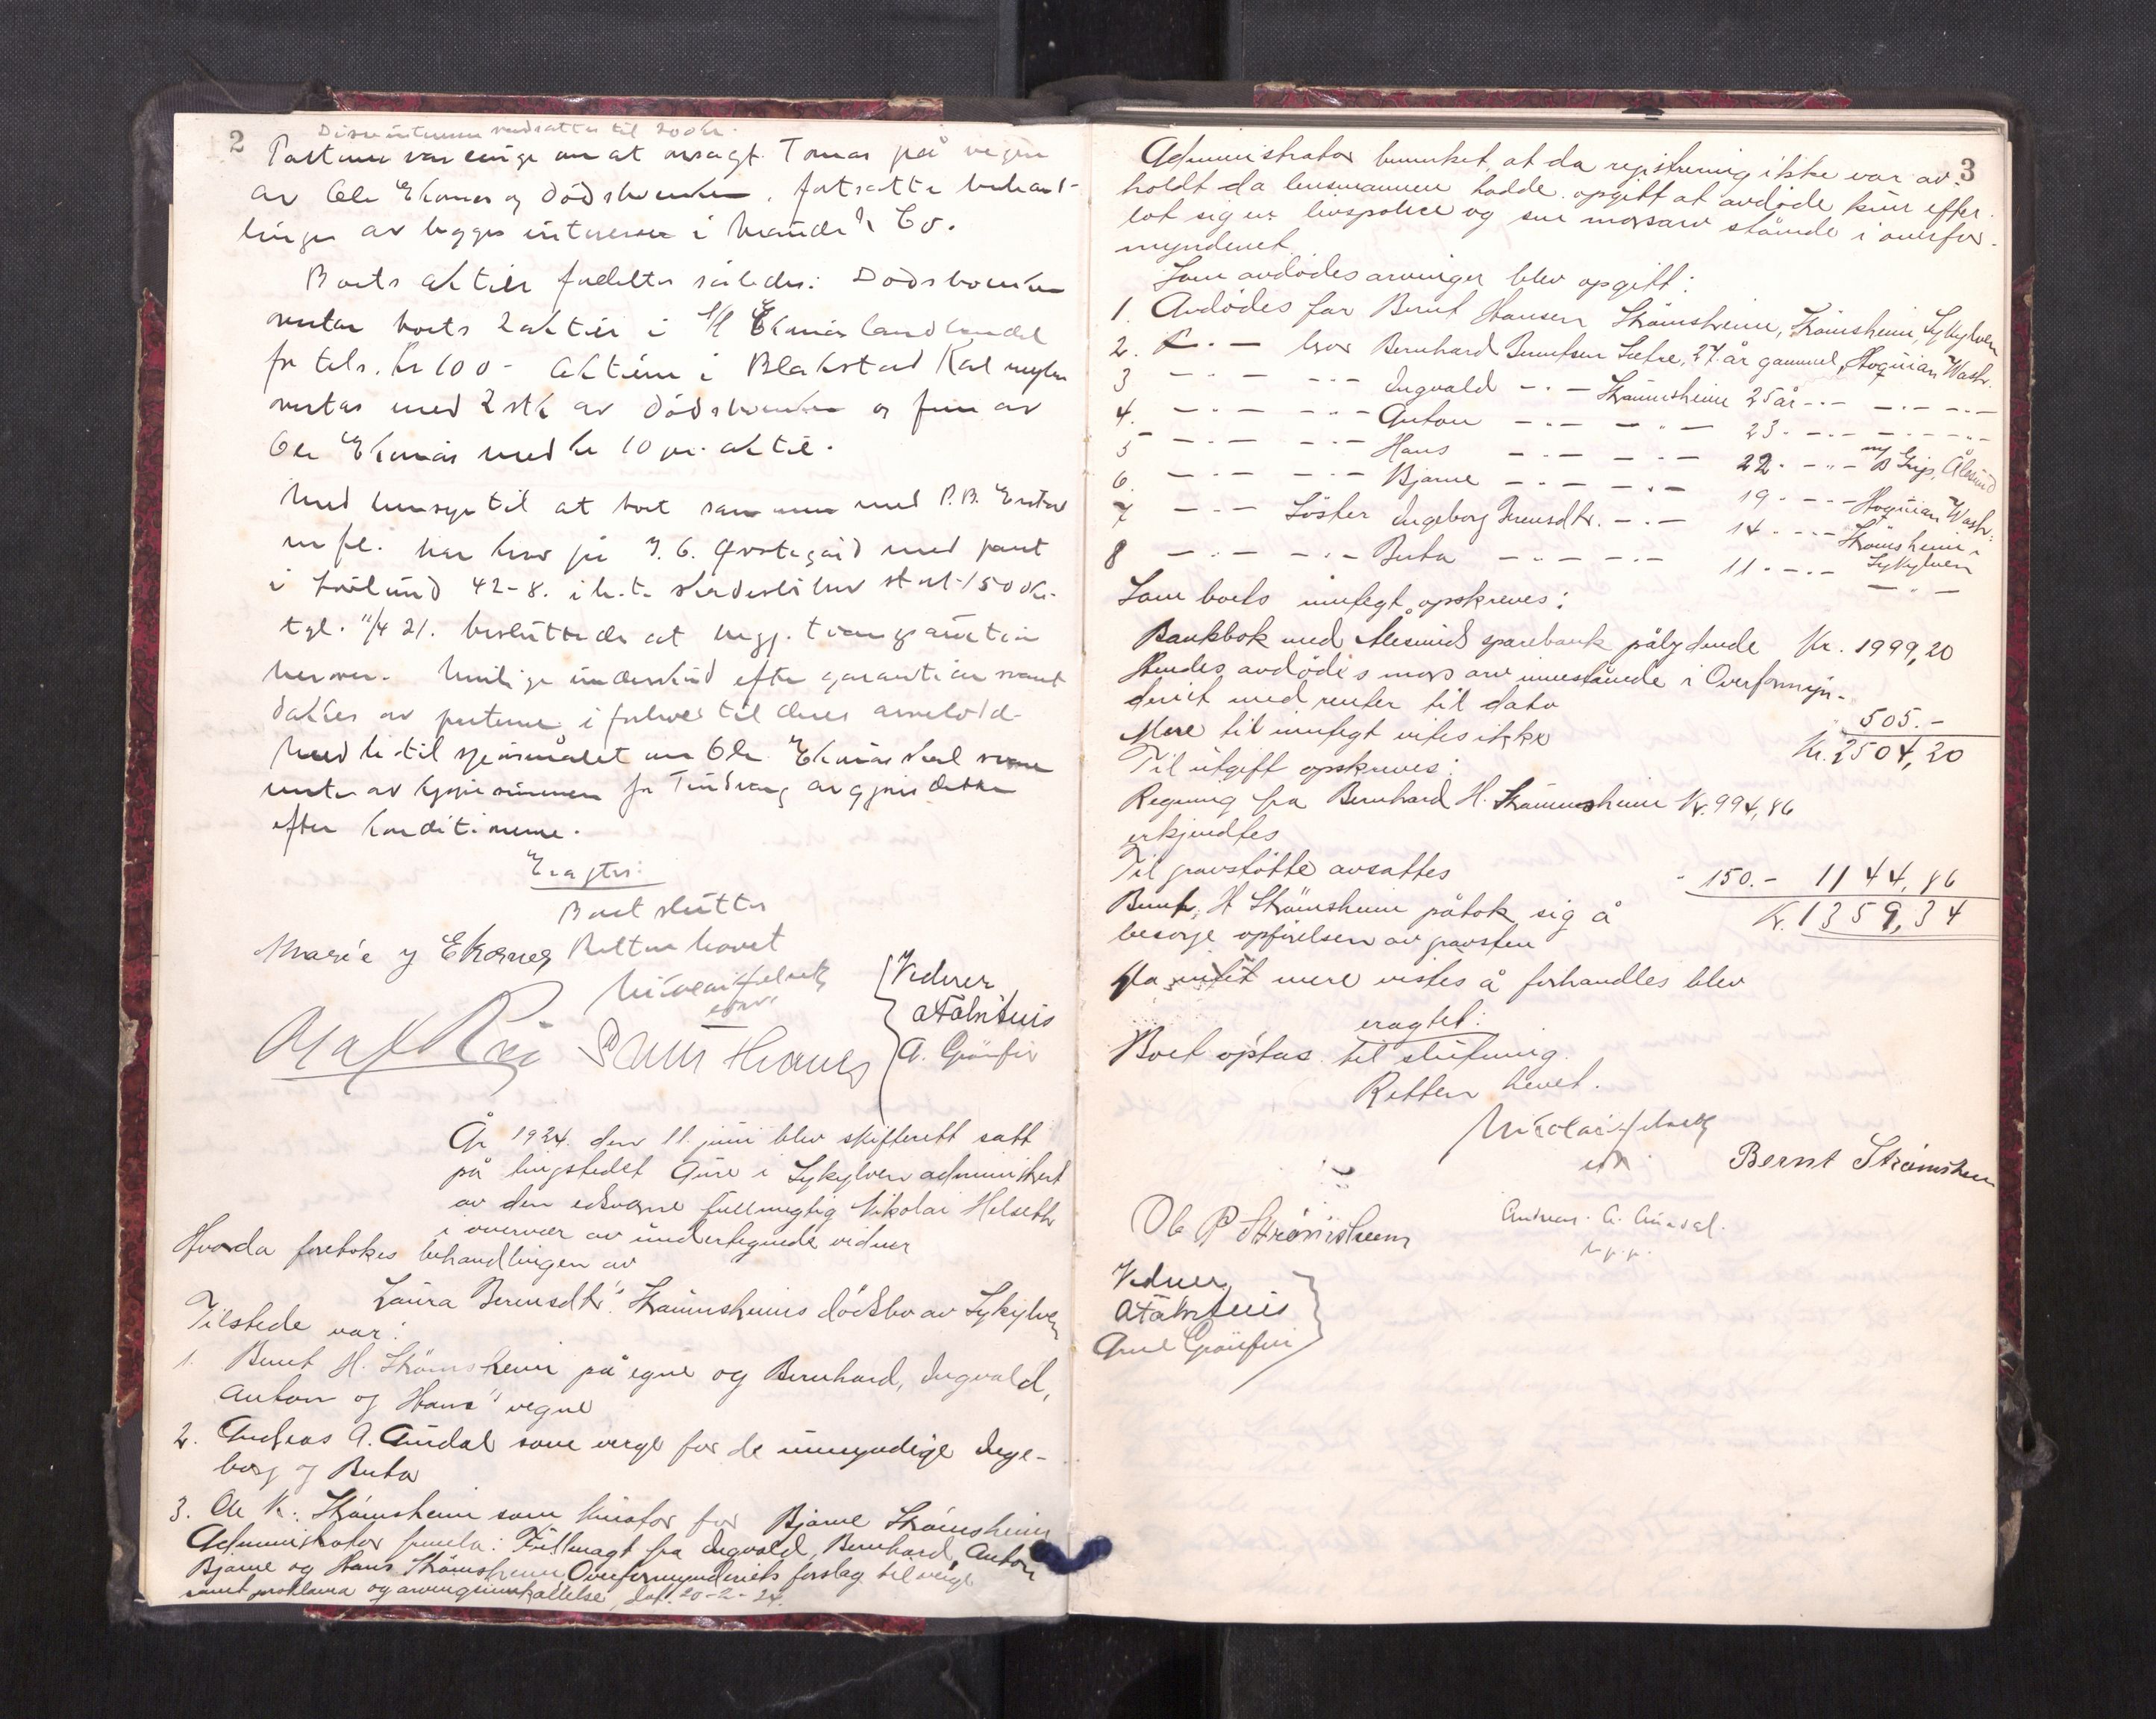 2
Disse interesser verdsattes til 200 kr.
Partene var enige om at overdragt. Tomas på vegne
av Ole Ekornes og dødsboenken. fortsatte behand-
lingen av begges interesser i Co.
Boets aktier fordeltes således: Dødsboenken
overtar boets 2 aktier i Ekornes landhandel
for tils. kr 100 - Aktiene i Blakstad
overtas med 2 stk av dødsboenken og fem av
Ole Ekornes med kr 10 pr. aktie.
Med hensyn til at boet sammen med P. B.
m fl. har krav på J. C. Øvstegård med pant
i 42-8. i h.t. skadesløsbrev stort 1500 kr.
tgl. 11/4 21. besluttedes at
herover. Mulige underskud efter garantien
dækkes av partene i forhold til deres arvelod.
Med h. til spørsmålet om Ole Ekornes skal
for Tindvang avgjøres dette
efter konditionene.
Eragtes:
Boet sluttes
Marie J Ekornes Retten hævet
Nicolai Helseth
edsv.
Vidner
A. Grönfur
År 1924. den 11. juni blev skifterett satt
på tingstedet Aure i Sykylven administrert
av den edsvorne fullmegtig Nikolai Helseth
i overvær av undertegnede vidner
Hvorda foretokes behandlingen av
Laura Berntsdtr. Strømsheims dödsbo av Sykylven
Tilstede var:
1. Bernt H. Strømsheim på egne og Bernhard, Ingvald,
Anton og Hans' vegne
2. Andreas A. Aurdal som verge for de umyndige Inge-
borg og Berta
3. Ole K. Strømsheim som kurator for Bjarne Strømsheim
Administrator fremla: Fullmagt fra Ingvald, Bernhard, Anton
Bjarne og Hans Strømsheim, Overformynderiets forslag til verge
samt proklama og arvingsinnkallelse, dat. 20-2-24.
3
Administrator bemerket, at da registrering ikke var av-
holdt da lensmannen hadde opgitt at avdøde kun efter-
lot sig en livspolice og sin morsarv stående i overfor-
mynderiet
Som avdödes arvinger blev opgitt:
1. Avdödes far Bernt Hansen Strømsheim, Strømsheim, Sykylven
2. — " — bror Bernhard Berntsen Sætre, 27 år gammel, Hoquian Wash.
3 — " — — " — Ingvald — " — Strømsheim 25 år — " — — " — — " —
4. — " — — " — Anton — " — — " — 23. — " — — " — — " —
5 — " — — " — Hans — " — — " — 22. — " — Grip, Ålesund
6. — " — — " — Bjarne — " — — " — 19 — " — Hoquian Wash.
7 — " — Söster Ingeborg Berntsdtr. — " — 14 — " — Strømsheim,
Sykylven
8 — " — — " — Berta — " — — " — 11 — " — — " —
Som boets inntegt opskreves:
Bankbok med Ålesunds sparebank pålydende Kr. 1999,20
Hendes, avdödes mors arv innestående i Overformyn-
deriet med renter til dato " 505.-
Mere til inntegt vites ikke Kr. 2504,20
Til utgift opskreves:
Regning fra Bernhard H. Strømsheim Kr. 994,86
erkjendtes
Til gravstötte avsattes " 150.- 1144,86
Bernt H Strømsheim påtok sig å Kr. 1359,34
besørge opførelsen av gravsten
Da intet mere vistes å forhandles blev
eragtet:
Boet optas til slutning.
Retten hevet.
Nicolai Helseth
edsv.
Bernt Strømsheim
Ole P Strømsheim
Andreas A. Aurdal.
m. p. p.
Vidner
Arne Grönfur